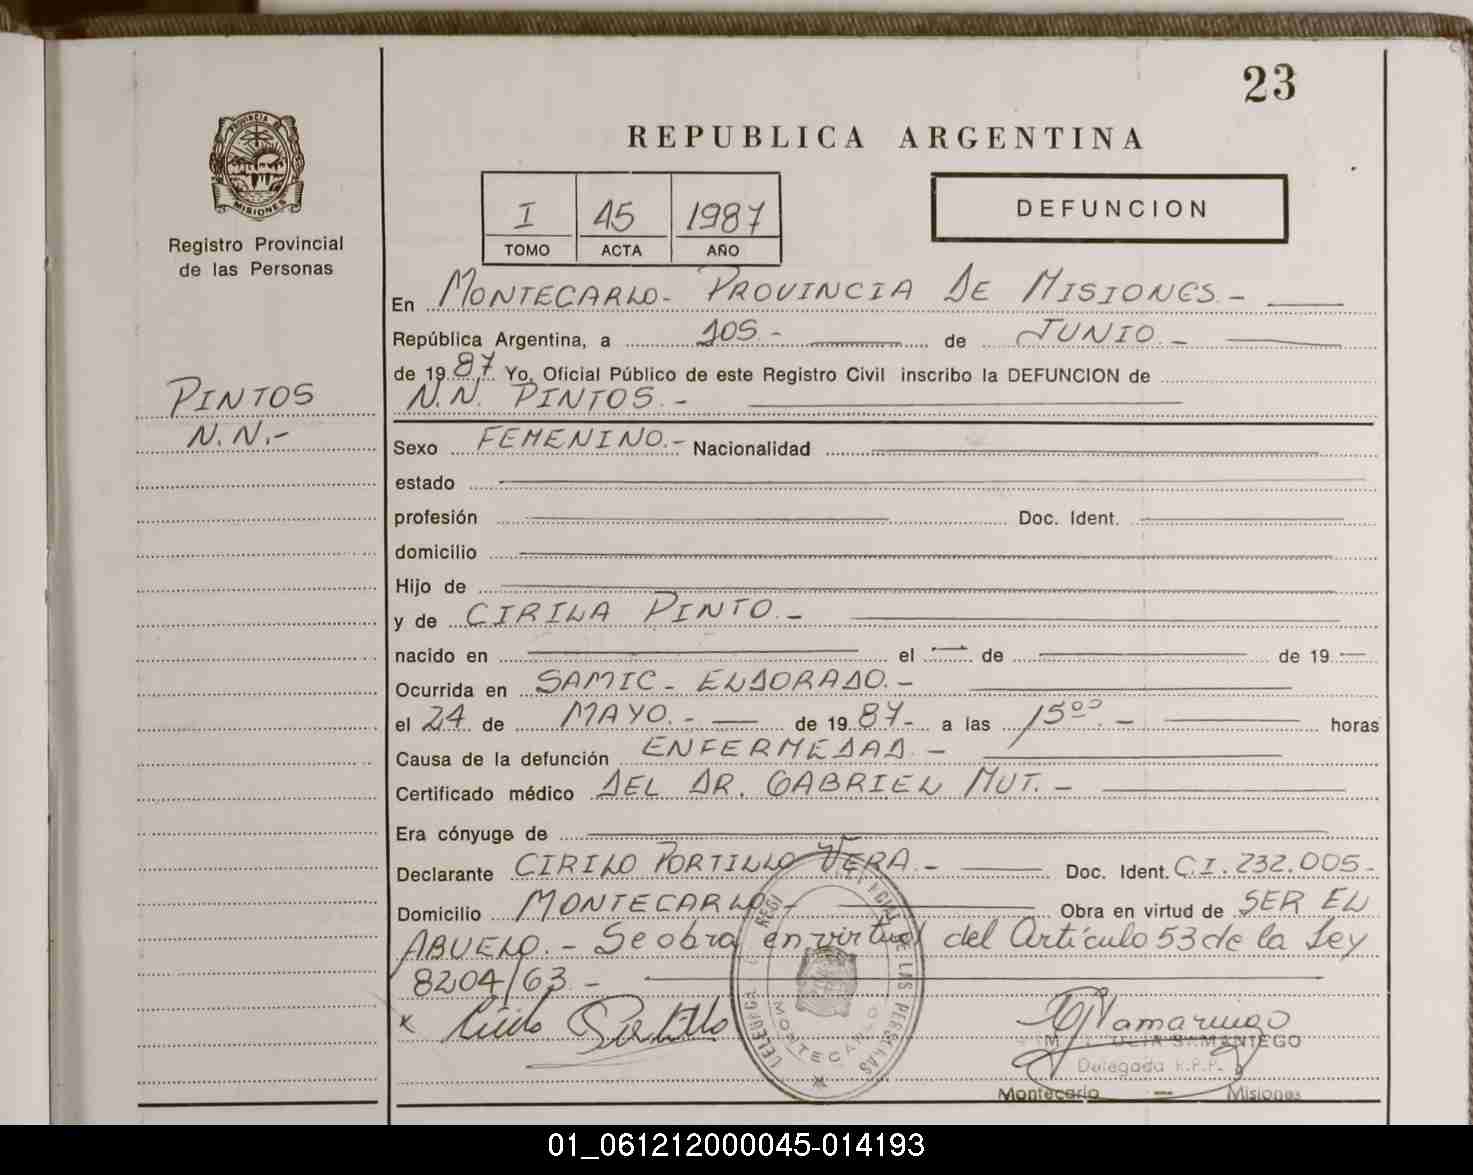 23
REPUBLICA ARGENTINA
PROVINCIA DE
MISIONES
Registro Provincial
de las Personas
I 45 1987
TOMO ACTA AÑO
DEFUNCION
En MONTECARLO.- PROVINCIA DE MISIONES.-
República Argentina, a DOS.- de JUNIO.-
de 1987. Yo, Oficial Público de este Registro Civil inscribo la DEFUNCION de
PINTOS
N.N. PINTOS.-
N.N.-
Sexo FEMENINO.- Nacionalidad
estado
profesión Doc. Ident.
domicilio
Hijo de
y de CIRILA PINTO.-
nacido en el de de 19
Ocurrida en SAMIC - ELDORADO.-
el 24 de MAYO.- de 1987- a las 15⁰⁰.- horas
Causa de la defunción ENFERMEDAD.-
Certificado médico DEL DR. GABRIEL MUT.-
Era cónyuge de
Declarante CIRILO PORTILLO VERA.- Doc. Ident. C.I. 232.005-
Domicilio MONTECARLO.- Obra en virtud de SER EL
ABUELO.- Se obra en virtud del Artículo 53 de la Ley
8204/63.-
x Cirilo Portillo
DE LAS PERSONAS
MONTECARLO
SAMANIEGO
Delegada R.P.P.
Montecarlo — Misiones
01_061212000045-014193